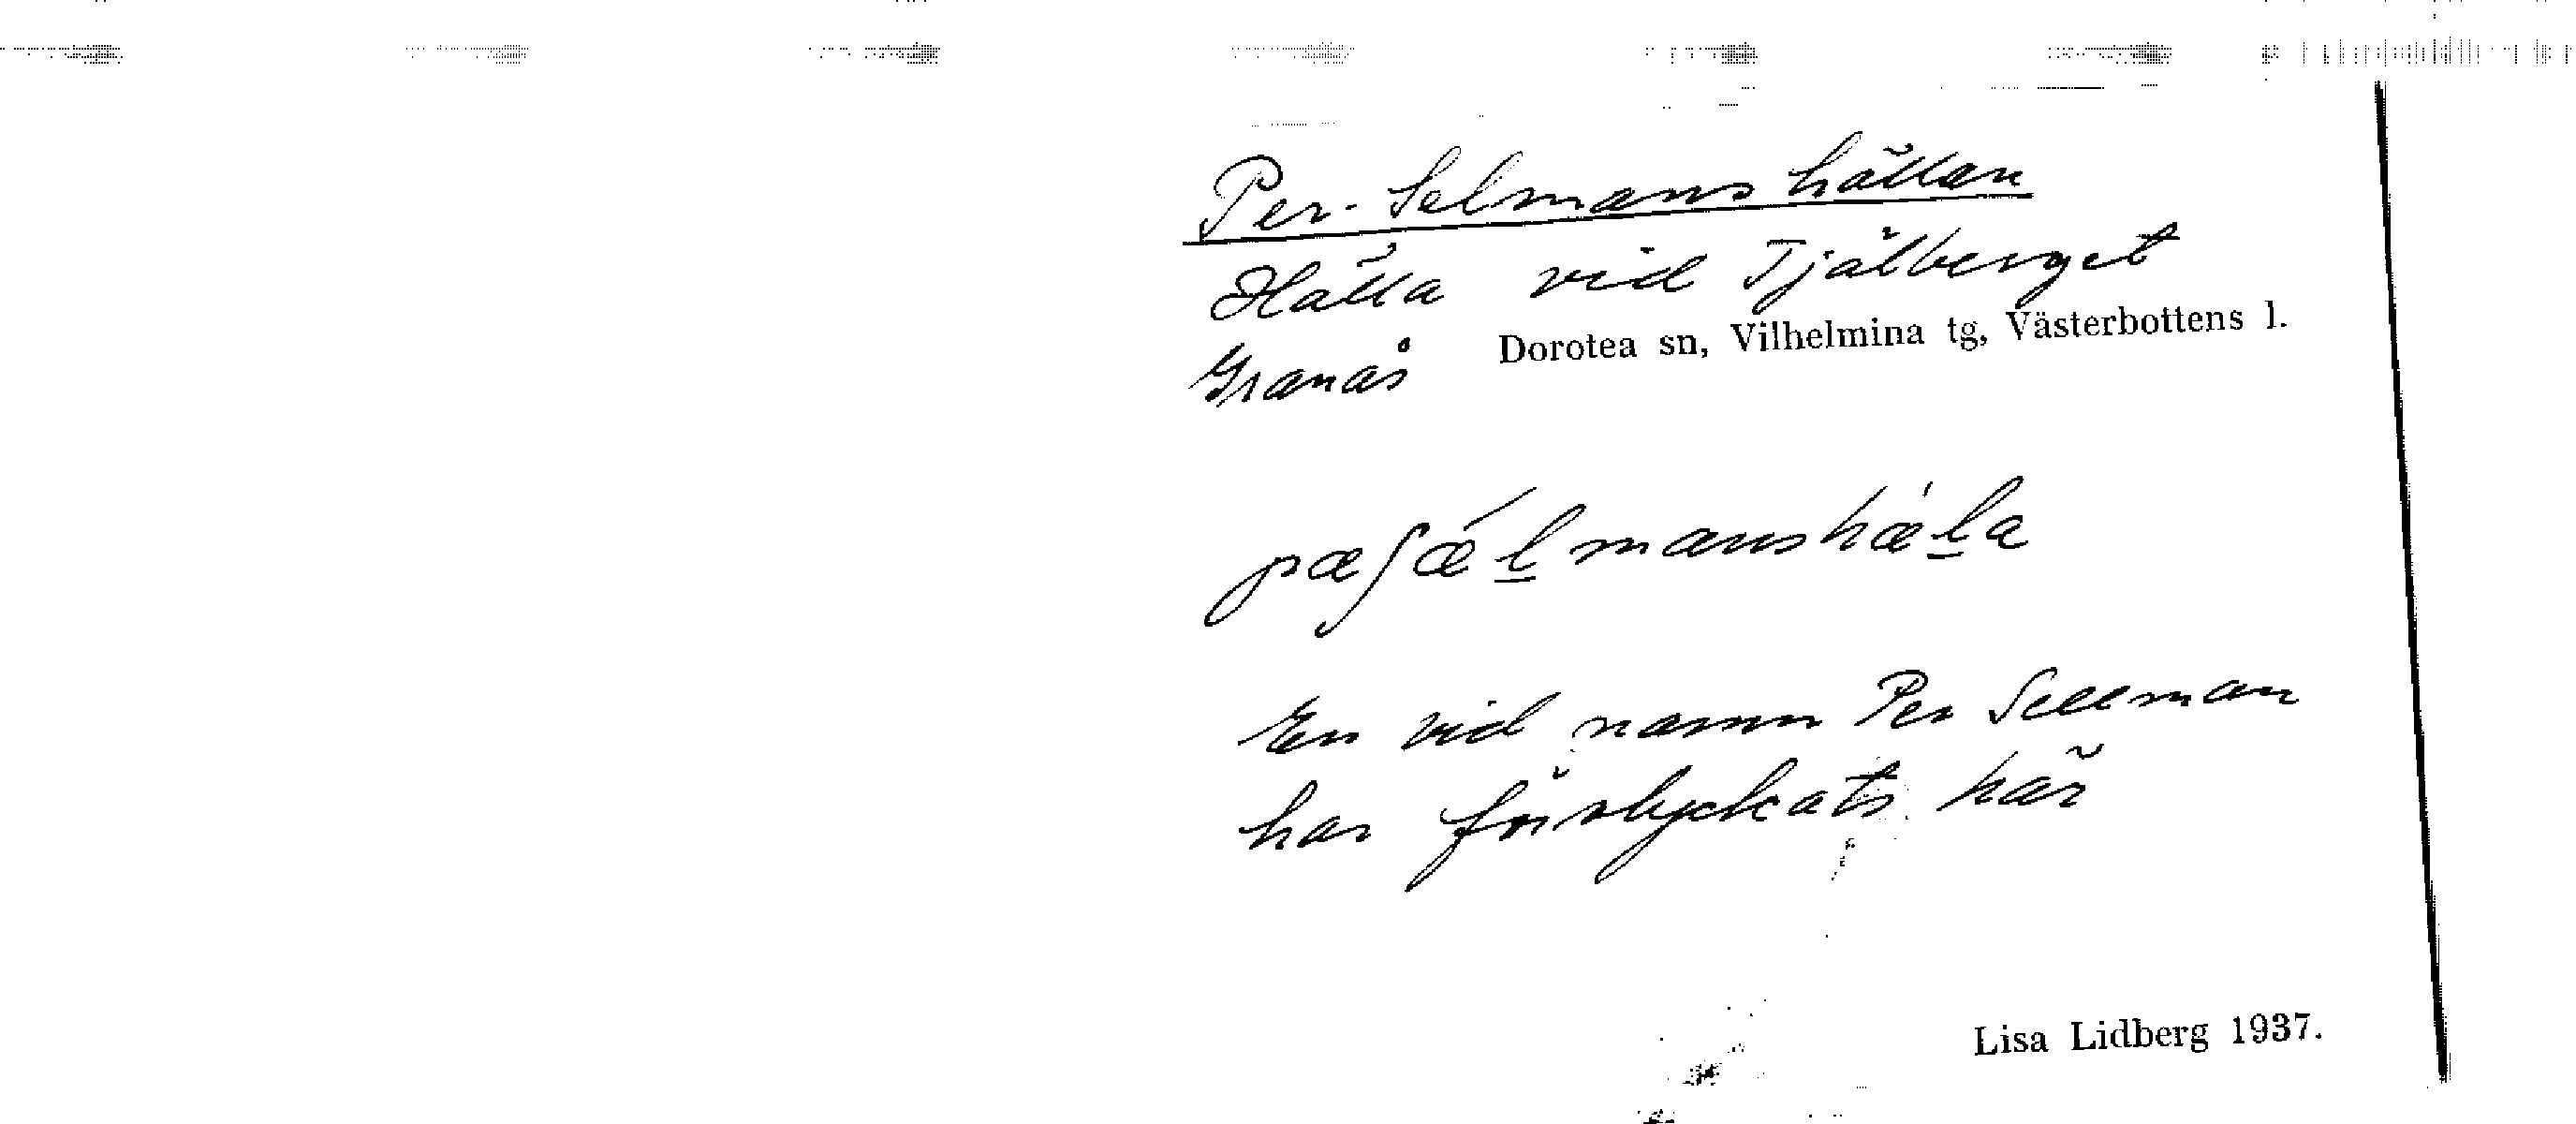 Per-Selmanshällan
Hälla vid Tjälberget
Dorotea sn, Vilhelmina tg, Västerbottens l.
Granås
pæʃǽl̲manshæ̀l̲a
En vid namn Per Sellman
har förolyckats här
Lisa Lidberg 1937.